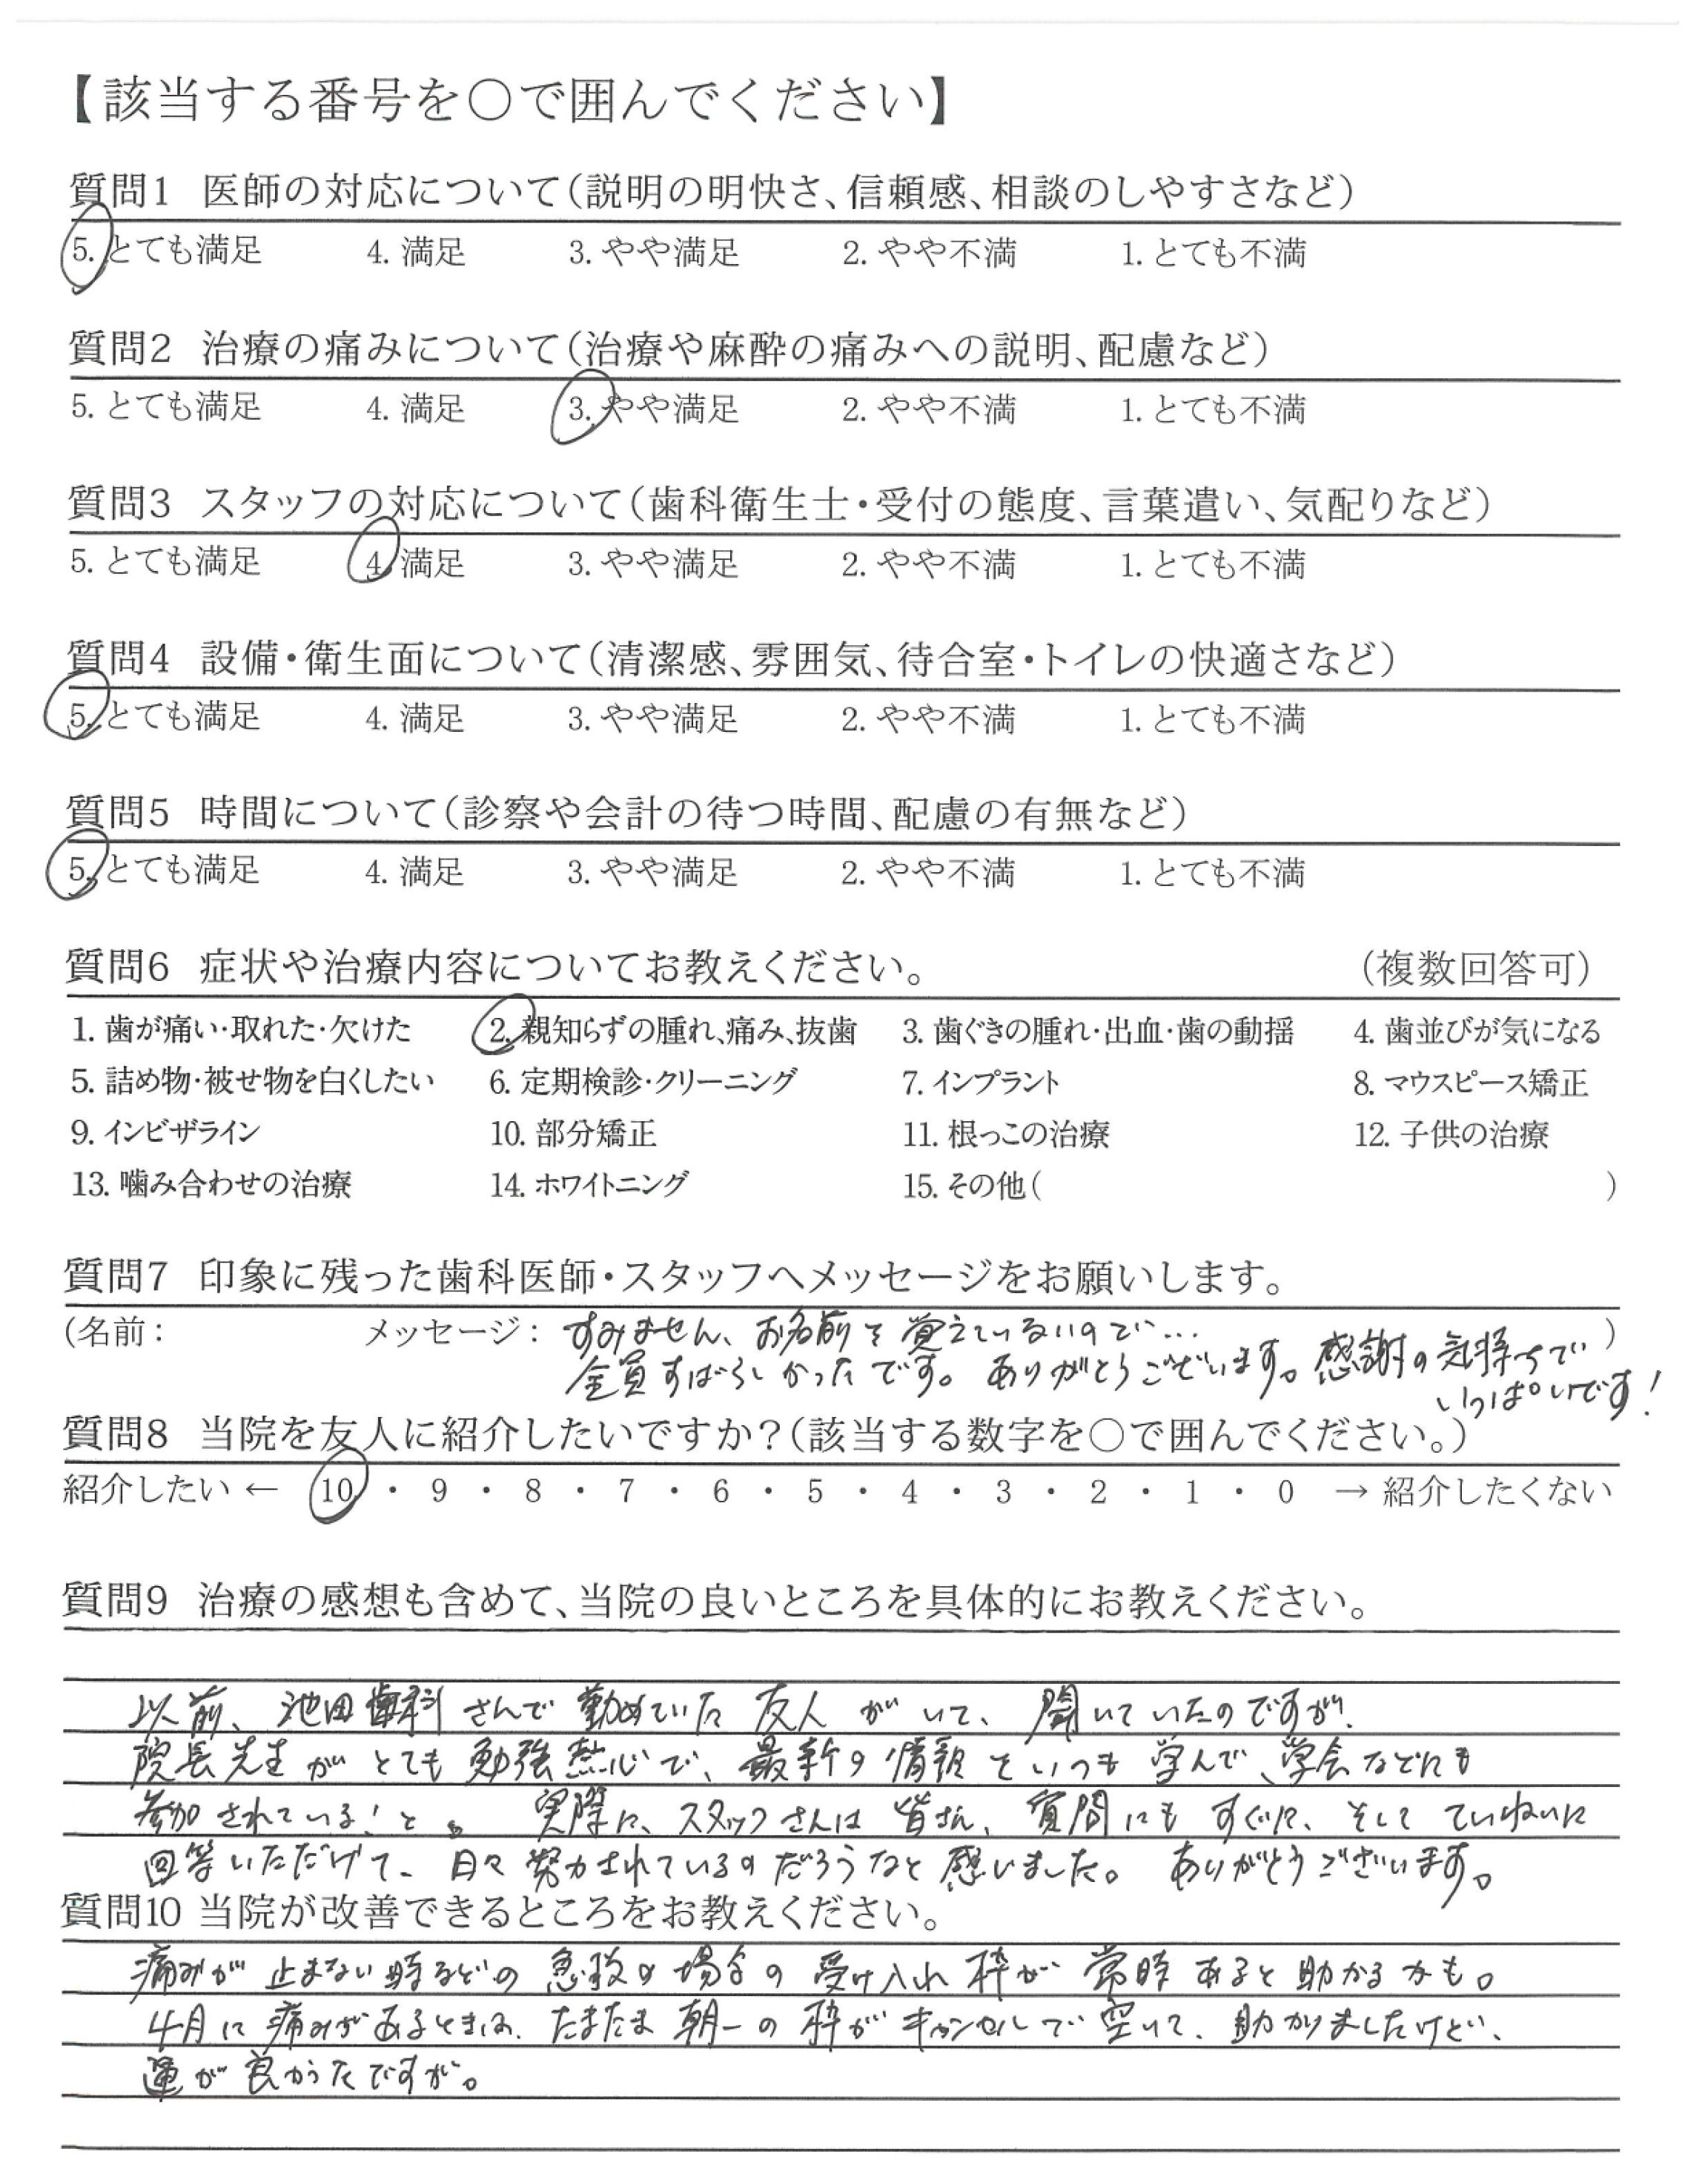 【該当する番号を○で囲んでください】
質問1 医師の対応について(説明の明快さ、信頼感、相談のしやすさなど)
5. とても満足 4. 満足 3. やや満足 2. やや不満 1. とても不満
質問2 治療の痛みについて(治療や麻酔の痛みへの説明、配慮など)
5. とても満足 4. 満足 3. やや満足 2. やや不満 1. とても不満
質問3 スタッフの対応について(歯科衛生士・受付の態度、言葉遣い、気配りなど)
5. とても満足 4. 満足 3. やや満足 2. やや不満 1. とても不満
質問4 設備・衛生面について(清潔感、雰囲気、待合室・トイレの快適さなど)
5. とても満足 4. 満足 3. やや満足 2. やや不満 1. とても不満
質問5 時間について(診察や会計の待つ時間、配慮の有無など)
5. とても満足 4. 満足 3. やや満足 2. やや不満 1. とても不満
質問6 症状や治療内容についてお教えください。 (複数回答可)
1. 歯が痛い・取れた・欠けた 2. 親知らずの腫れ、痛み、抜歯 3. 歯ぐきの腫れ・出血・歯の動揺 4. 歯並びが気になる
5. 詰め物・被せ物を白くしたい 6. 定期検診・クリーニング 7. インプラント 8. マウスピース矯正
9. インビザライン 10. 部分矯正 11. 根っこの治療 12. 子供の治療
13. 噛み合わせの治療 14. ホワイトニング 15. その他( )
質問7 印象に残った歯科医師・スタッフへメッセージをお願いします。
(名前: メッセージ: すみません、お名前を覚えていないので… )
全員すばらしかったです。ありがとうございます。感謝の気持ちで
いっぱいです!
質問8 当院を友人に紹介したいですか?(該当する数字を○で囲んでください。)
紹介したい ← 10 ・ 9 ・ 8 ・ 7 ・ 6 ・ 5 ・ 4 ・ 3 ・ 2 ・ 1 ・ 0 → 紹介したくない
質問9 治療の感想も含めて、当院の良いところを具体的にお教えください。
以前、池田歯科さんで勤めていた友人がいて、聞いていたのですが、
院長先生がとても勉強熱心で、最新の情報をいつも学んで、学会などにも
参加されている!と。実際に、スタッフさんは皆さん、質問にもすぐに、そしてていねいに
回答いただけて、日々努力されているのだろうなと感じました。ありがとうございます。
質問10 当院が改善できるところをお教えください。
痛みが止まない時などの急救の場合の受け入れ枠が常時あると助かるかも。
4月に痛みがあるときは、たまたま朝一の枠がキャンセルで空いて、助かりましたけど、
運が良かったですが。